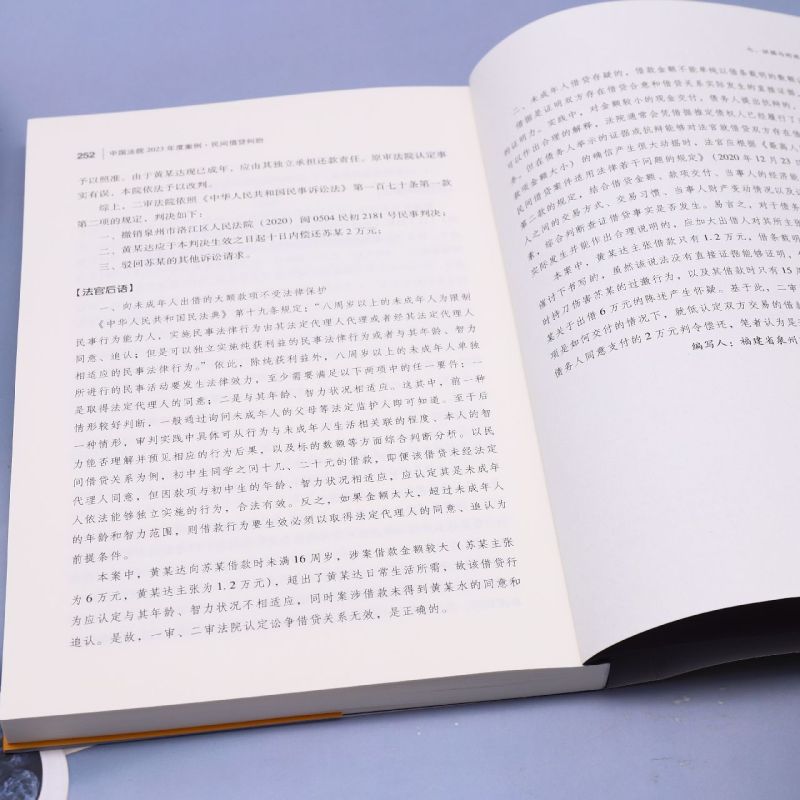 252 中国法院 2023 年度案例·民间借贷纠纷
予以照准。由于黄某达现已成年，应由其独立承担还款责任。原审法院认定事
实有误，本院依法予以改判。
综上，二审法院依照《中华人民共和国民事诉讼法》第一百七十条第一款
第二项的规定，判决如下：
一、撤销泉州市洛江区人民法院（2020）闽 0504 民初 2181 号民事判决；
二、黄某达应于本判决生效之日起十日内偿还苏某 2 万元；
三、驳回苏某的其他诉讼请求。
【法官后语】
一、向未成年人出借的大额款项不受法律保护
《中华人民共和国民法典》第十九条规定：“八周岁以上的未成年人为限制
民事行为能力人，实施民事法律行为由其法定代理人代理或者经其法定代理人
同意、追认；但是可以独立实施纯获利益的民事法律行为或者与其年龄、智力
相适应的民事法律行为。”依此，除纯获利益外，八周岁以上的未成年人单独
所进行的民事活动要发生法律效力，至少需要满足以下两项中的任一要件：一
是取得法定代理人的同意；二是与其年龄、智力状况相适应。这其中，前一种
情形较好判断，一般通过询问未成年人的父母等法定监护人即可知道。至于后
一种情形，审判实践中具体可从行为与未成年人生活相关联的程度、本人的智
力能否理解并预见相应的行为后果，以及标的数额等方面综合判断分析。以民
间借贷关系为例，初中生同学之间十几、二十元的借款，即便该借贷未经法定
代理人同意，但因款项与初中生的年龄、智力状况相适应，应认定其是未成年
人依法能够独立实施的行为，合法有效。反之，如果金额太大，超过未成年人
的年龄和智力范围，则借款行为要生效必须以取得法定代理人的同意、追认为
前提条件。
本案中，黄某达向苏某借款时未满 16 周岁，涉案借款金额较大（苏某主张
为 6 万元，黄某达主张为 1. 2 万元），超出了黄某达日常生活所需，故该借贷行
为应认定与其年龄、智力状况不相适应，同时案涉借款未得到黄某水的同意和
追认。是故，一审、二审法院认定讼争借贷关系无效，是正确的。
二、未成年人借贷存疑的，借款金额不能单纯以借条载明的数额
借据是证明双方存在借贷合意和借贷关系实际发生的直接证据
的证明力。实践中，对金额较小的现金交付，债务人提出抗辩的，
可以作出合理的解释，法院通常会凭借据推定债权人已经履行了
务。但在债务人举示的证据或抗辩能够对法官就借贷双方存在借
款项金额大小）的确信产生很大动摇时，法官应根据《最高人
民间借贷案件适用法律若干问题的规定》（2020 年 12 月 23
第二款的规定，结合借贷金额、款项交付、当事人的经济能
人之间的交易方式、交易习惯、当事人财产变动情况以及
素，综合判断查证借贷事实是否发生。易言之，对于债务
实际发生并能作出合理说明的，应加大出借人对其所主
本案中，黄某达主张借款只有 1. 2 万元，借条数
催讨下书写的，虽然该说法没有直接证据能够证明，
时持刀伤害苏某的过激行为，以及其借款时只有 15
某关于出借 6 万元的陈述产生怀疑。基于此，二审
项是如何交付的情况下，就低认定双方交易的借
债务人同意支付的 2 万元判令偿还，笔者认为是
编写人：福建省泉州